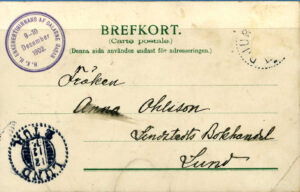 BREFKORT.
(Carte postale.)
(Denna sida användes endast för adresseringen.)
9-10
December
1902.
Fröken
Anna Ohlsson
Lindstedts Bokhandel
Lund
LUND